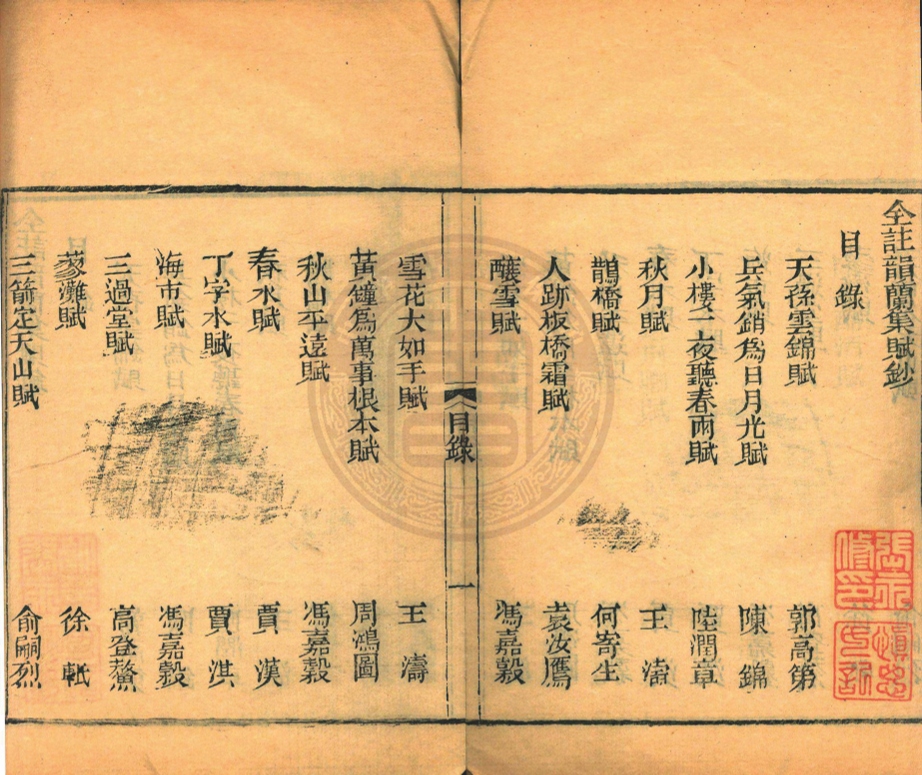 全註韻蘭集賦鈔
目錄
天孫雲錦賦 郭高第
兵氣銷爲日月光賦 陳錦
小樓一夜聽春雨賦 陸潤章
秋月賦 王濤
鵲橋賦 何寄生
人跡板橋霜賦 袁汝鴈
釀雪賦 馮嘉穀
目錄 一
雪花大如手賦 王濤
黃鐘爲萬事根本賦 周鴻圖
秋山平遠賦 馮嘉穀
春水賦 賈漢
丁字水賦 賈淇
海市賦 馮嘉穀
三過堂賦 高登鰲
蓼灘賦 徐軝
三箭定天山賦 俞嗣烈